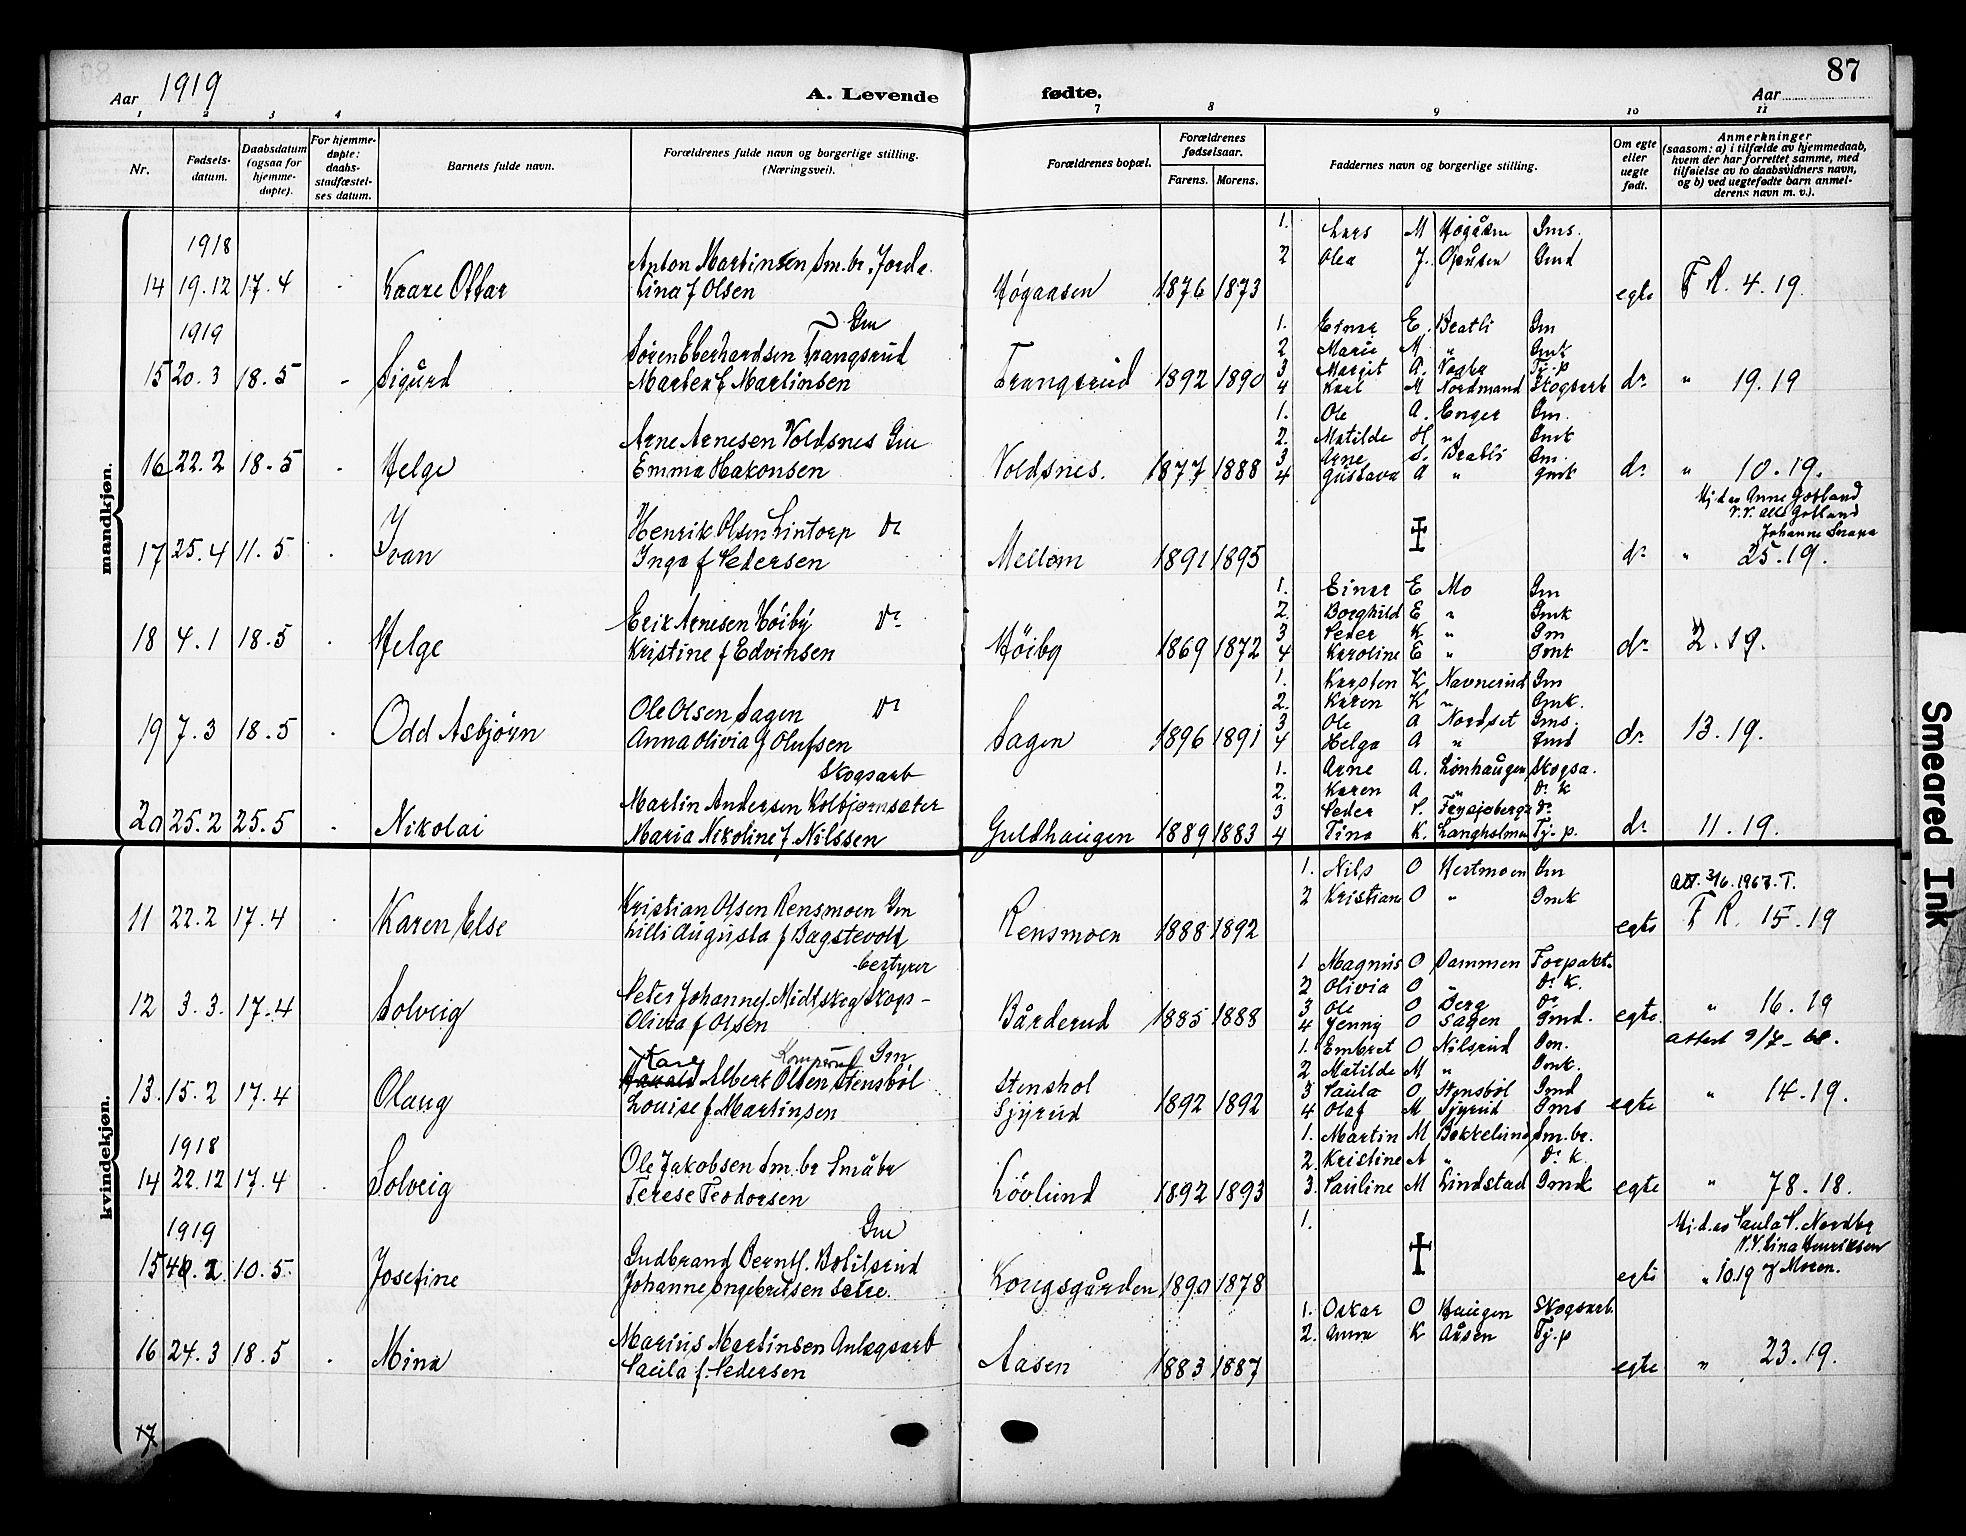 87
Aar 1919
A. Levende fødte.
Aar
1 2 3 4 7 8 9 10 11
Nr.
Fødsels-
datum.
Daabsdatum
(ogsaa for
hjemme-
døpte).
For hjemme-
døpte:
daabs-
stadfæstel-
ses datum.
Barnets fulde navn.
Forældrenes fulde navn og borgerlige stilling.
(Næringsvei).
Forældrenes bopæl.
Forældrenes
fødselsaar.
Farens. Morens.
Faddernes navn og borgerlige stilling.
Om egte
eller
uegte
født.
Anmerkninger
(saasom: a) i tilfælde av hjemmedaab,
hvem der har forrettet samme, med
tilføielse av to daabsvidners navn,
og b) ved uegtefødte barn anmel-
derens navn m. v.).
mandkjøn.
1918
14 19.12 17.4 - Kaare Ottar
Anton Martinsen Sm.br. Jorda
Lina f Olsen
Høgaasen 1876 1873
1. Lars M Høgåsen Gms.
2 Olea J. Opåsen Gmd
egte F R. 4.19.
1919
15 20.3 18.5 - Sigurd
Gm
Søren Eberhardsen Trangsrud
Marten E Martinsen
Trangsrud 1892 1890
1. Einar E. Bratli Gm
2 Marie M. " Gmk
3 Margit A. Nagba Tj.p
4 Karl M Nordmand Skogsarb
do " 19.19
16 22.2 18.5 - Helge
Arne Arnesen Voldsnes Gm
Emma Hakonsen
Voldsnes. 1877 1888
1. Ole A. Enger Gm.
2. Matilde H " Gmk
3 Arne S. Bratli Gm.
4 Gustava A " gmk
do " 10.19.
17 25.4 11.5 - Ivan
Henrik Olsen Lintorp do
Inga f Pedersen
Mellem 1891 1895
Hj.d. av Anne Gotland
V.V. Olle Gotland
Johanne Snapa
do " 25.19.
18 4.1 18.5 - Helge
Erik Arnesen Høiby do
Kristine f Edvinsen
Høiby 1869 1872
1. Einar E Mo Gm
2. Borghild E " Gmk
3 Peder K " Gm
4 Karoline E " Gmk
do 2.19.
19 7.3 18.5 - Odd Asbjørn
Ole Olsen Sagen do
Anna Olivia f Olufsen
Sagen 1896 1891
1. Karsten K Navnerud Gm
2. Karen K " Gmk.
3 Ole A Nordset Gms.
4 Helga A " Gmd
do 13.19.
20 25.2 25.5 - Nikolai
Skogsarb
Martin Andersen Kolbjørnsæter
Maria Nikoline f. Nilssen
Guldhaugen 1889 1883
1. Arne A. Lønhaugen Skogsa.
2. Karen A. " do k
3 Peder P. Frysjøberge do
4 Tina K. Langholmen Tj.p.
do 11.19.
kvindekjøn.
11 22.2 17.4 - Karen Else
Kristian Olsen Rensmoen Gm
Lilli Augusta f Bagstevold
Rensmoen 1888 1892
1. Nils O Hestmoen Gm
2 Kristiane O " Gmk
egte
att. 3/6. 1967. T.
F R. 15.19
12 3.3. 17.4 Solveig
bestyrer
Peter Johannes. Midtskog Skogs-
Olivia f Olsen
Bårderud 1885 1888
1 Magnus O Dammen Forpakt.
2 Olivia O " do K.
3 Ole O Berg do
4 Jenny O Sagen Gmd.
egte. " 16.19
attest 9/7-68.
13. 15.2 17.4 Olaug
Karl Komperud Gm
Harald Albert Olsen Stensbøl
Louise f Martinsen
Stensbol
Sjyrud 1892 1892
1. Embret O Nilsrud Gm.
2. Matilde M " Gmk.
3 Paula O Stensbøl Gmd
4 Olaf M Sjyrud Gms
egte " 14.19.
1918
14 22.12 17.4 - Solveig
Ole Jakobsen Sm.br Småbr
Terese Teodorsen
Løvlund 1892 1893
1. Martin M Bekkelund Sm.br.
2. Kristine A " do k.
3. Pauline M Lindstad Gmk
egte " 78.18.
1919
15 4.2 10.5. Josefine
Gm
Gudbrand Berntf. Botilsrud
Johanne Ingebretsen Setre.
Kongsgården 1890 1878
1.
egte
Hj.d. av Paula P. Nordby
V.V. Lina Henriksen
" 10.19 og Moren.
16 24.3 18.5 - Mina
Marius Martinsen Anlægsarb
Paula f. Pedersen
Aasen 1883 1887
1. Oskar O Haugen Skogsarb.
2. Anna K Aåsen Tj.p
egte " 23.19.
17
Smeared Ink